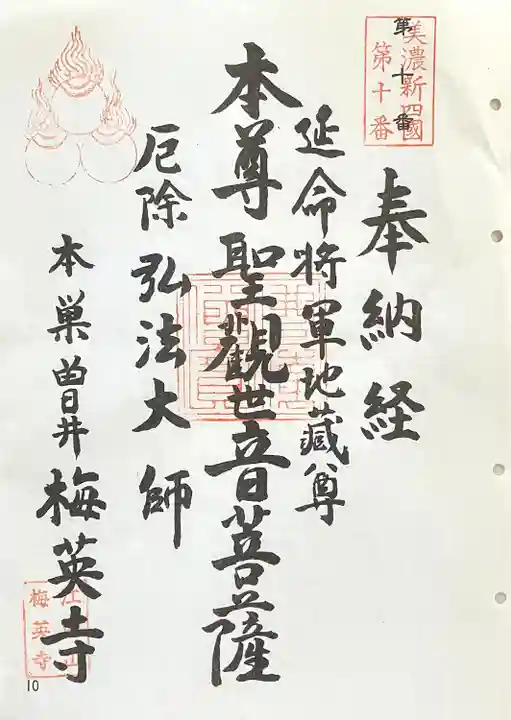 美濃新四國
第十番
第十番
奉納経
延命将軍地蔵尊
本尊聖觀世音菩薩
厄除弘法大師
本巣曽井梅英寺
梅英寺
10